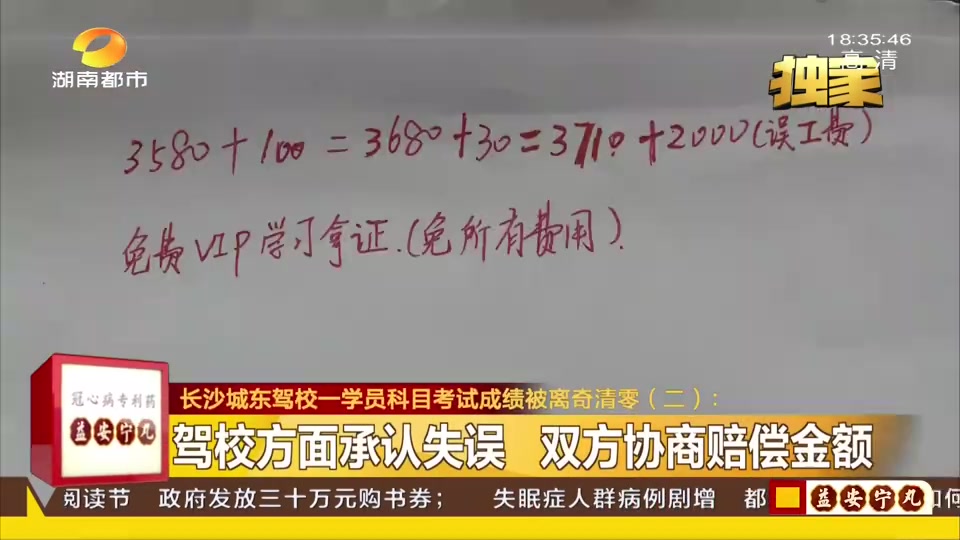 湖南都市
18:35:46
高清
独家
3580+100=3680+30=3710+2000(误工费)
免费VIP学习拿证.(免所有费用).
冠心病专利药
益安宁丸
长沙城东驾校一学员科目考试成绩被离奇清零（二）：
驾校方面承认失误 双方协商赔偿金额
阅读节 政府发放三十万元购书券； 失眠症人群病例剧增 都
益安宁丸
如何